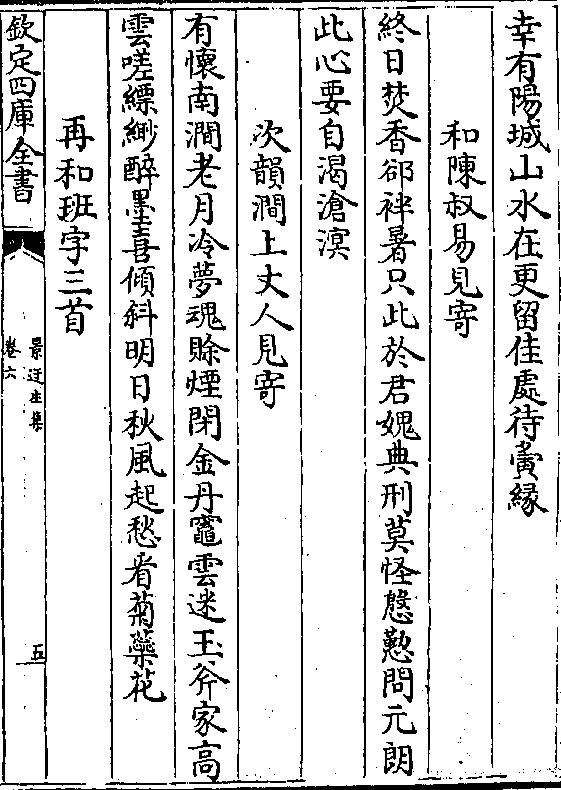 幸有陽城山水在更留佳處待夤緣
和陳叔易見寄
終日焚香郤袢暑只此於君媿典刑莫怪慇懃問元朗
此心要自渴滄溟
次韻澗上丈人見寄
有懷南澗老月冷夢魂賒煙閉金丹竈雲迷玉斧家高
雲嗟縹緲醉墨喜傾斜明日秋風起愁看菊蘂花
再和班字三首
欽定四庫全書
景迂生集
卷六
五